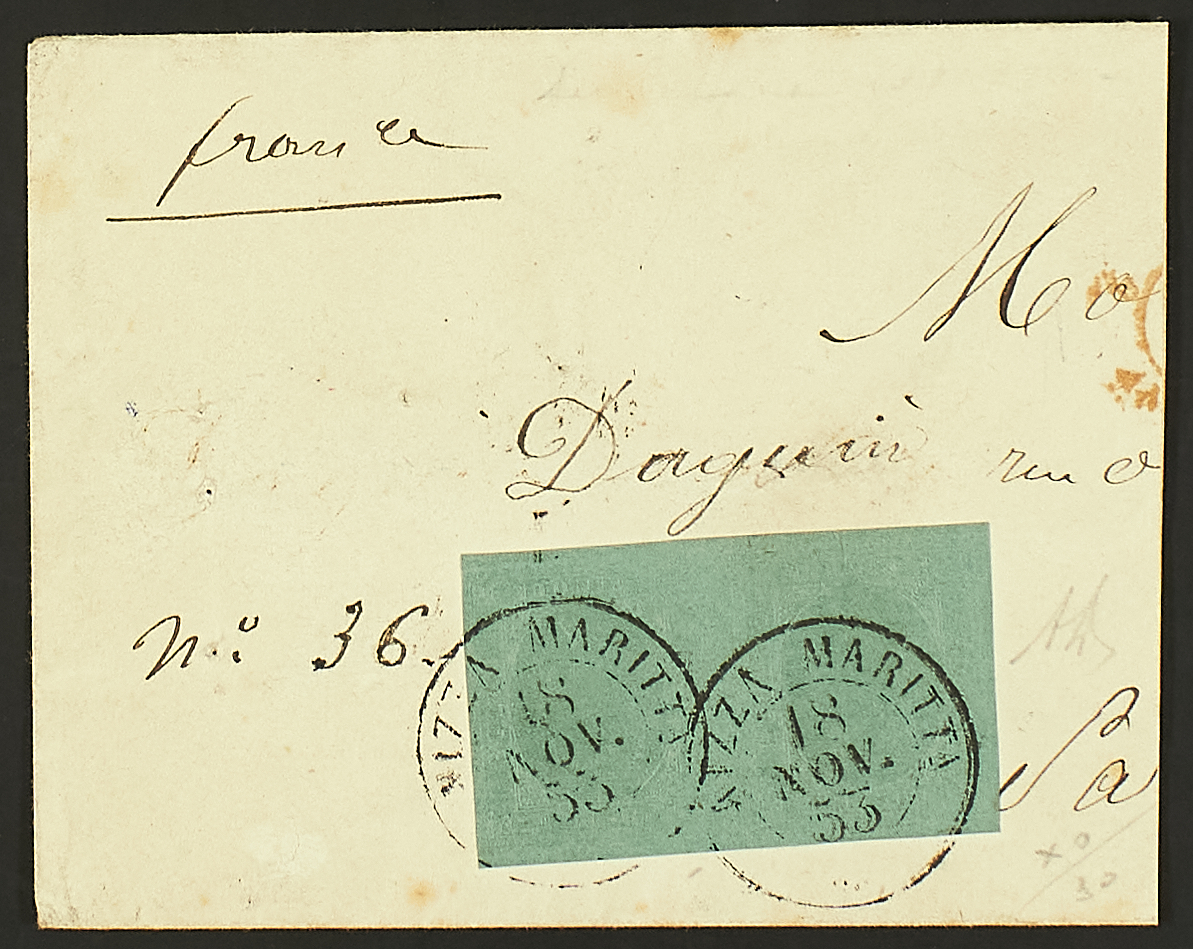 france
Mo
Daguin rue d
N.o 36.
NIZZA MARITTA
18
NOV.
53
NIZZA MARITTA
18
NOV.
53
Pa